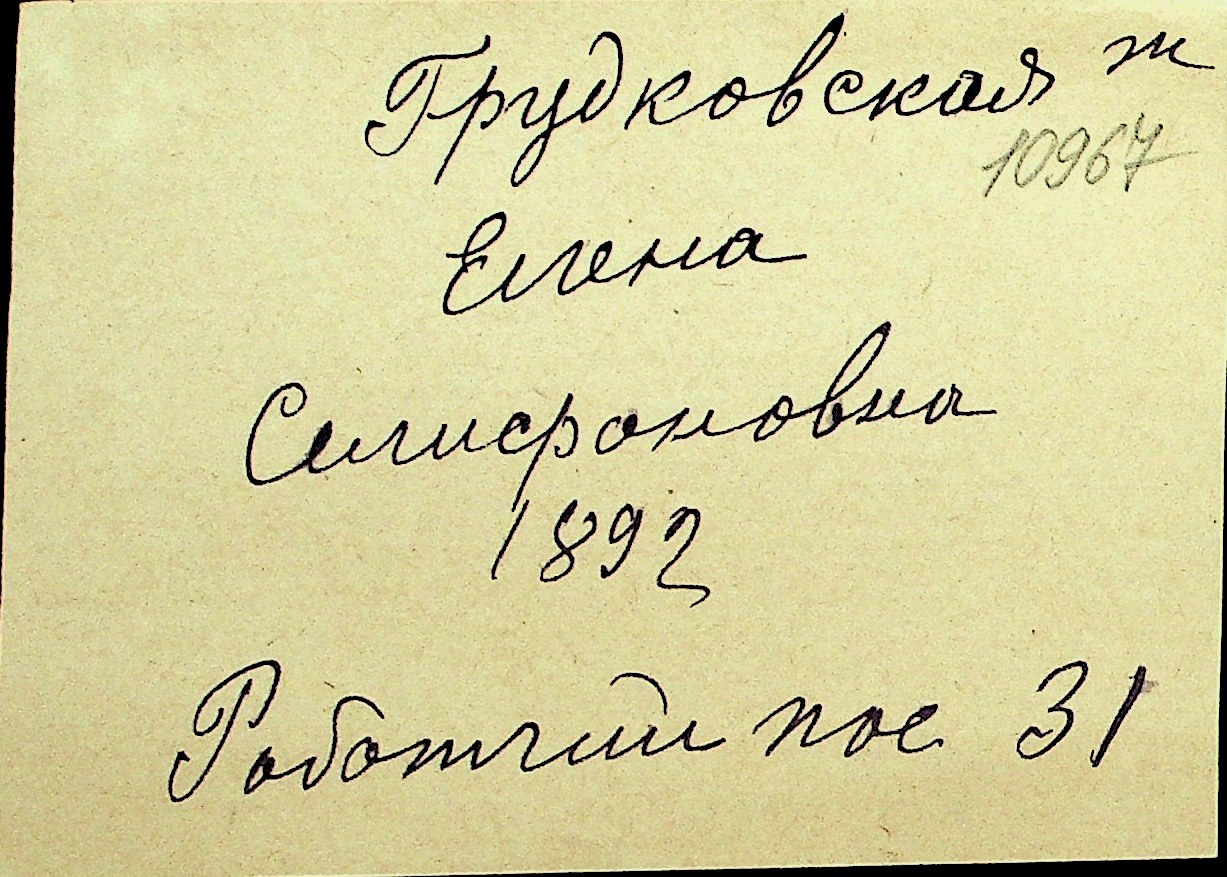 Грудковская ж
10967
Елена
Селифоновна
1892
Работчий пос 31